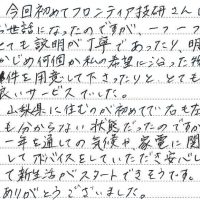 今回初めてフロンティア技研さんに
お世話になったのですが、一つ一つ
とても説明が丁寧であったり、明
らじめ何個か私の希望に沿った物
件を用意して下さったりと、とても
良いサービスでした。
山梨県に住むのが初めてで右も左
も分からない状態だったのですが
一年を通しての気候や、家電に関
してアドバイスをしていただき安心し
て新生活がスタートできそうです。
ありがとうございました。